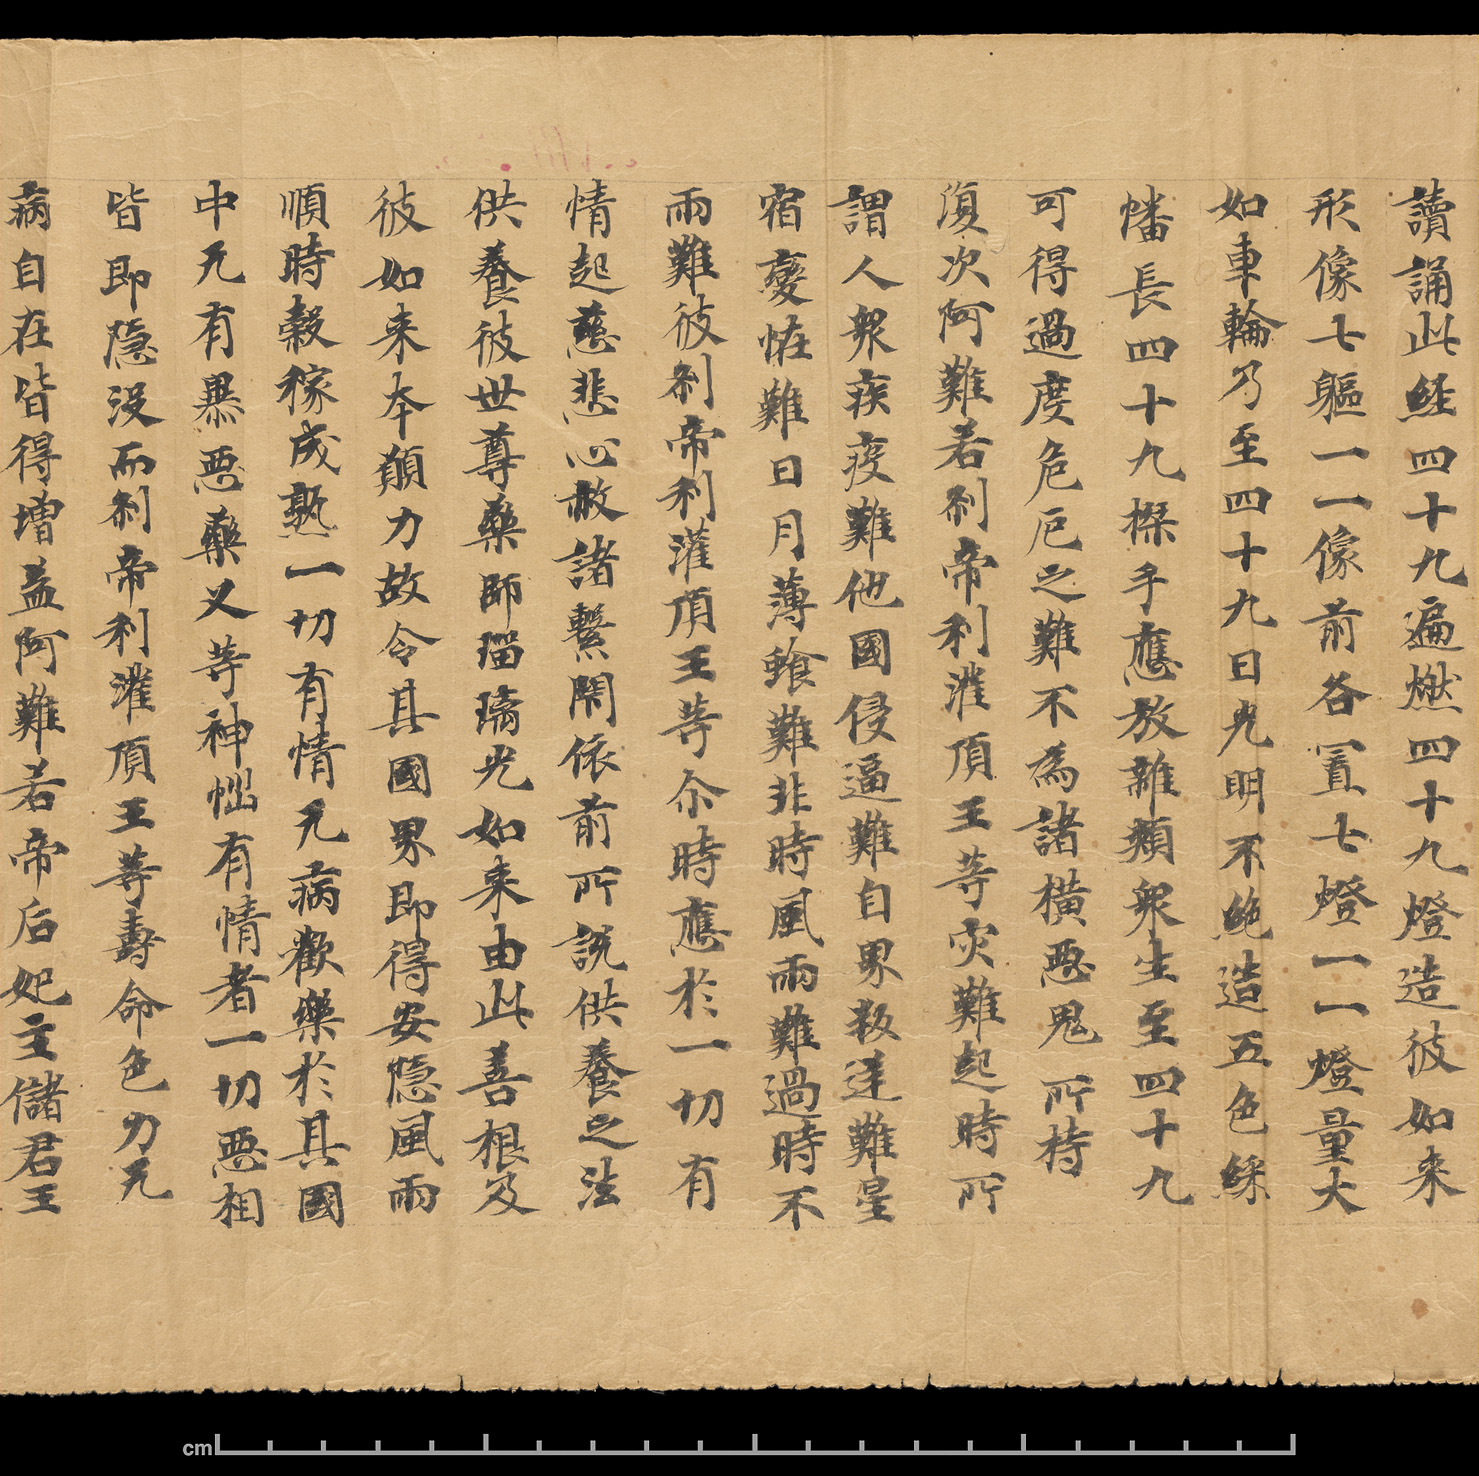 讀誦此経四十九遍燃四十九燈造彼如来
形像七軀一一像前各置七燈一一燈量大
如車輪乃至四十九日光明不絶造五色綵
幡長四十九搩手應放雜類衆生至四十九
可得過度危厄之難不為諸橫惡鬼所持
復次阿難若刹帝利灌頂王等灾難起時所
謂人衆疾疫難他國侵逼難自界叛逆難星
宿變恠難日月薄蝕難非時風雨難過時不
雨難彼刹帝利灌頂王等尒時應於一切有
情起慈悲心赦諸繫閇依前所説供養之法
供養彼世尊藥師瑠璃光如来由此善根及
彼如来本願力故令其國界即得安隱風雨
順時穀稼成熟一切有情无病歡樂於其國
中无有暴惡藥叉等神惱有情者一切惡相
皆即隱没而刹帝利灌頂王等壽命色力无
病自在皆得增益阿難若帝后妃主儲君王
cm